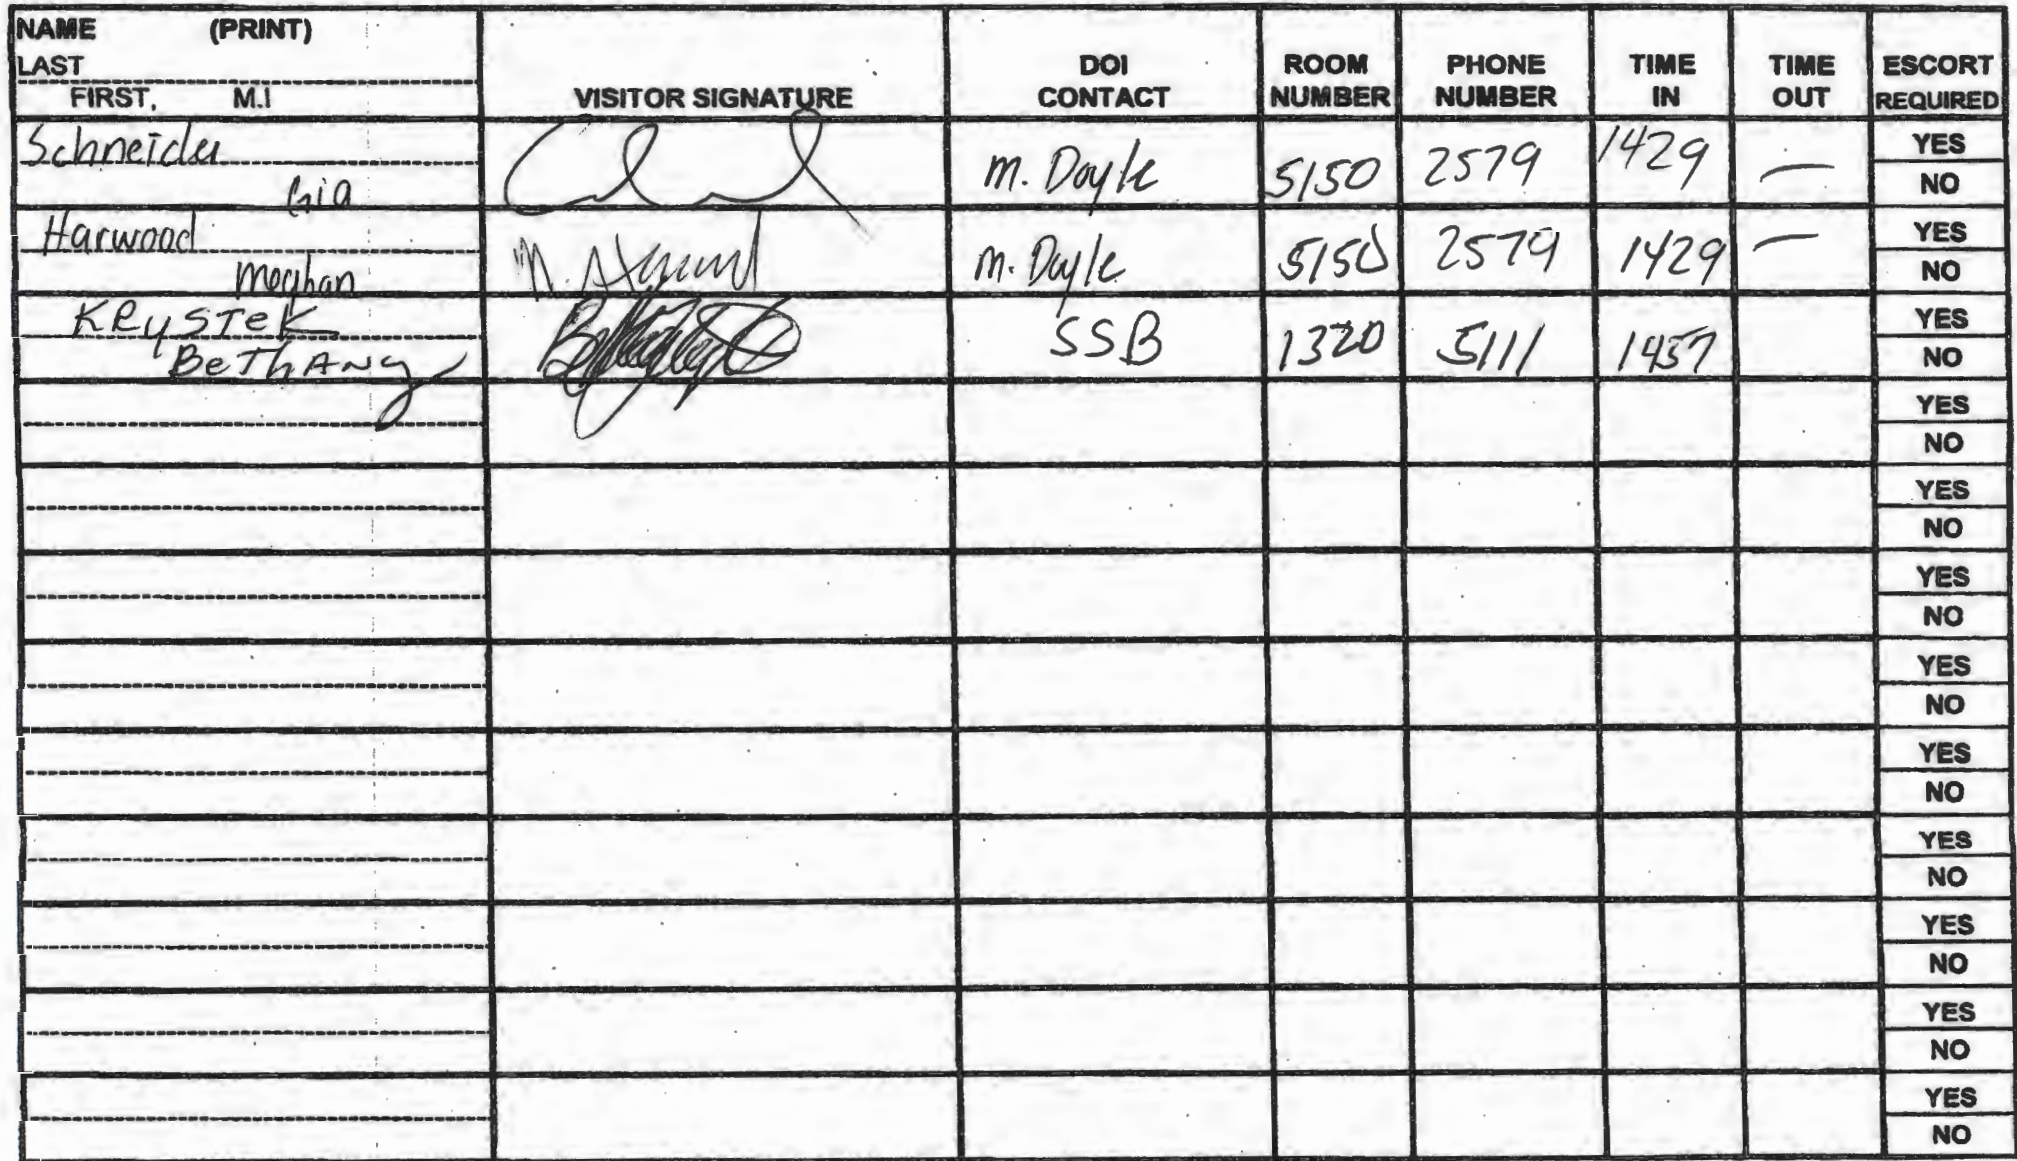 NAME (PRINT)
LAST
FIRST, M.I
VISITOR SIGNATURE
DOI CONTACT
ROOM NUMBER
PHONE NUMBER
TIME IN
TIME OUT
ESCORT REQUIRED
Schneider
Gia
M. Doyle 5150 2579 1429 —
YES
NO
Harwood
Meghan
M. Doyle 5150 2579 1429 —
YES
NO
KRySTeK
BeThANy
SSB 1320 5111 1457
YES
NO
YES
NO
YES
NO
YES
NO
YES
NO
YES
NO
YES
NO
YES
NO
YES
NO
YES
NO